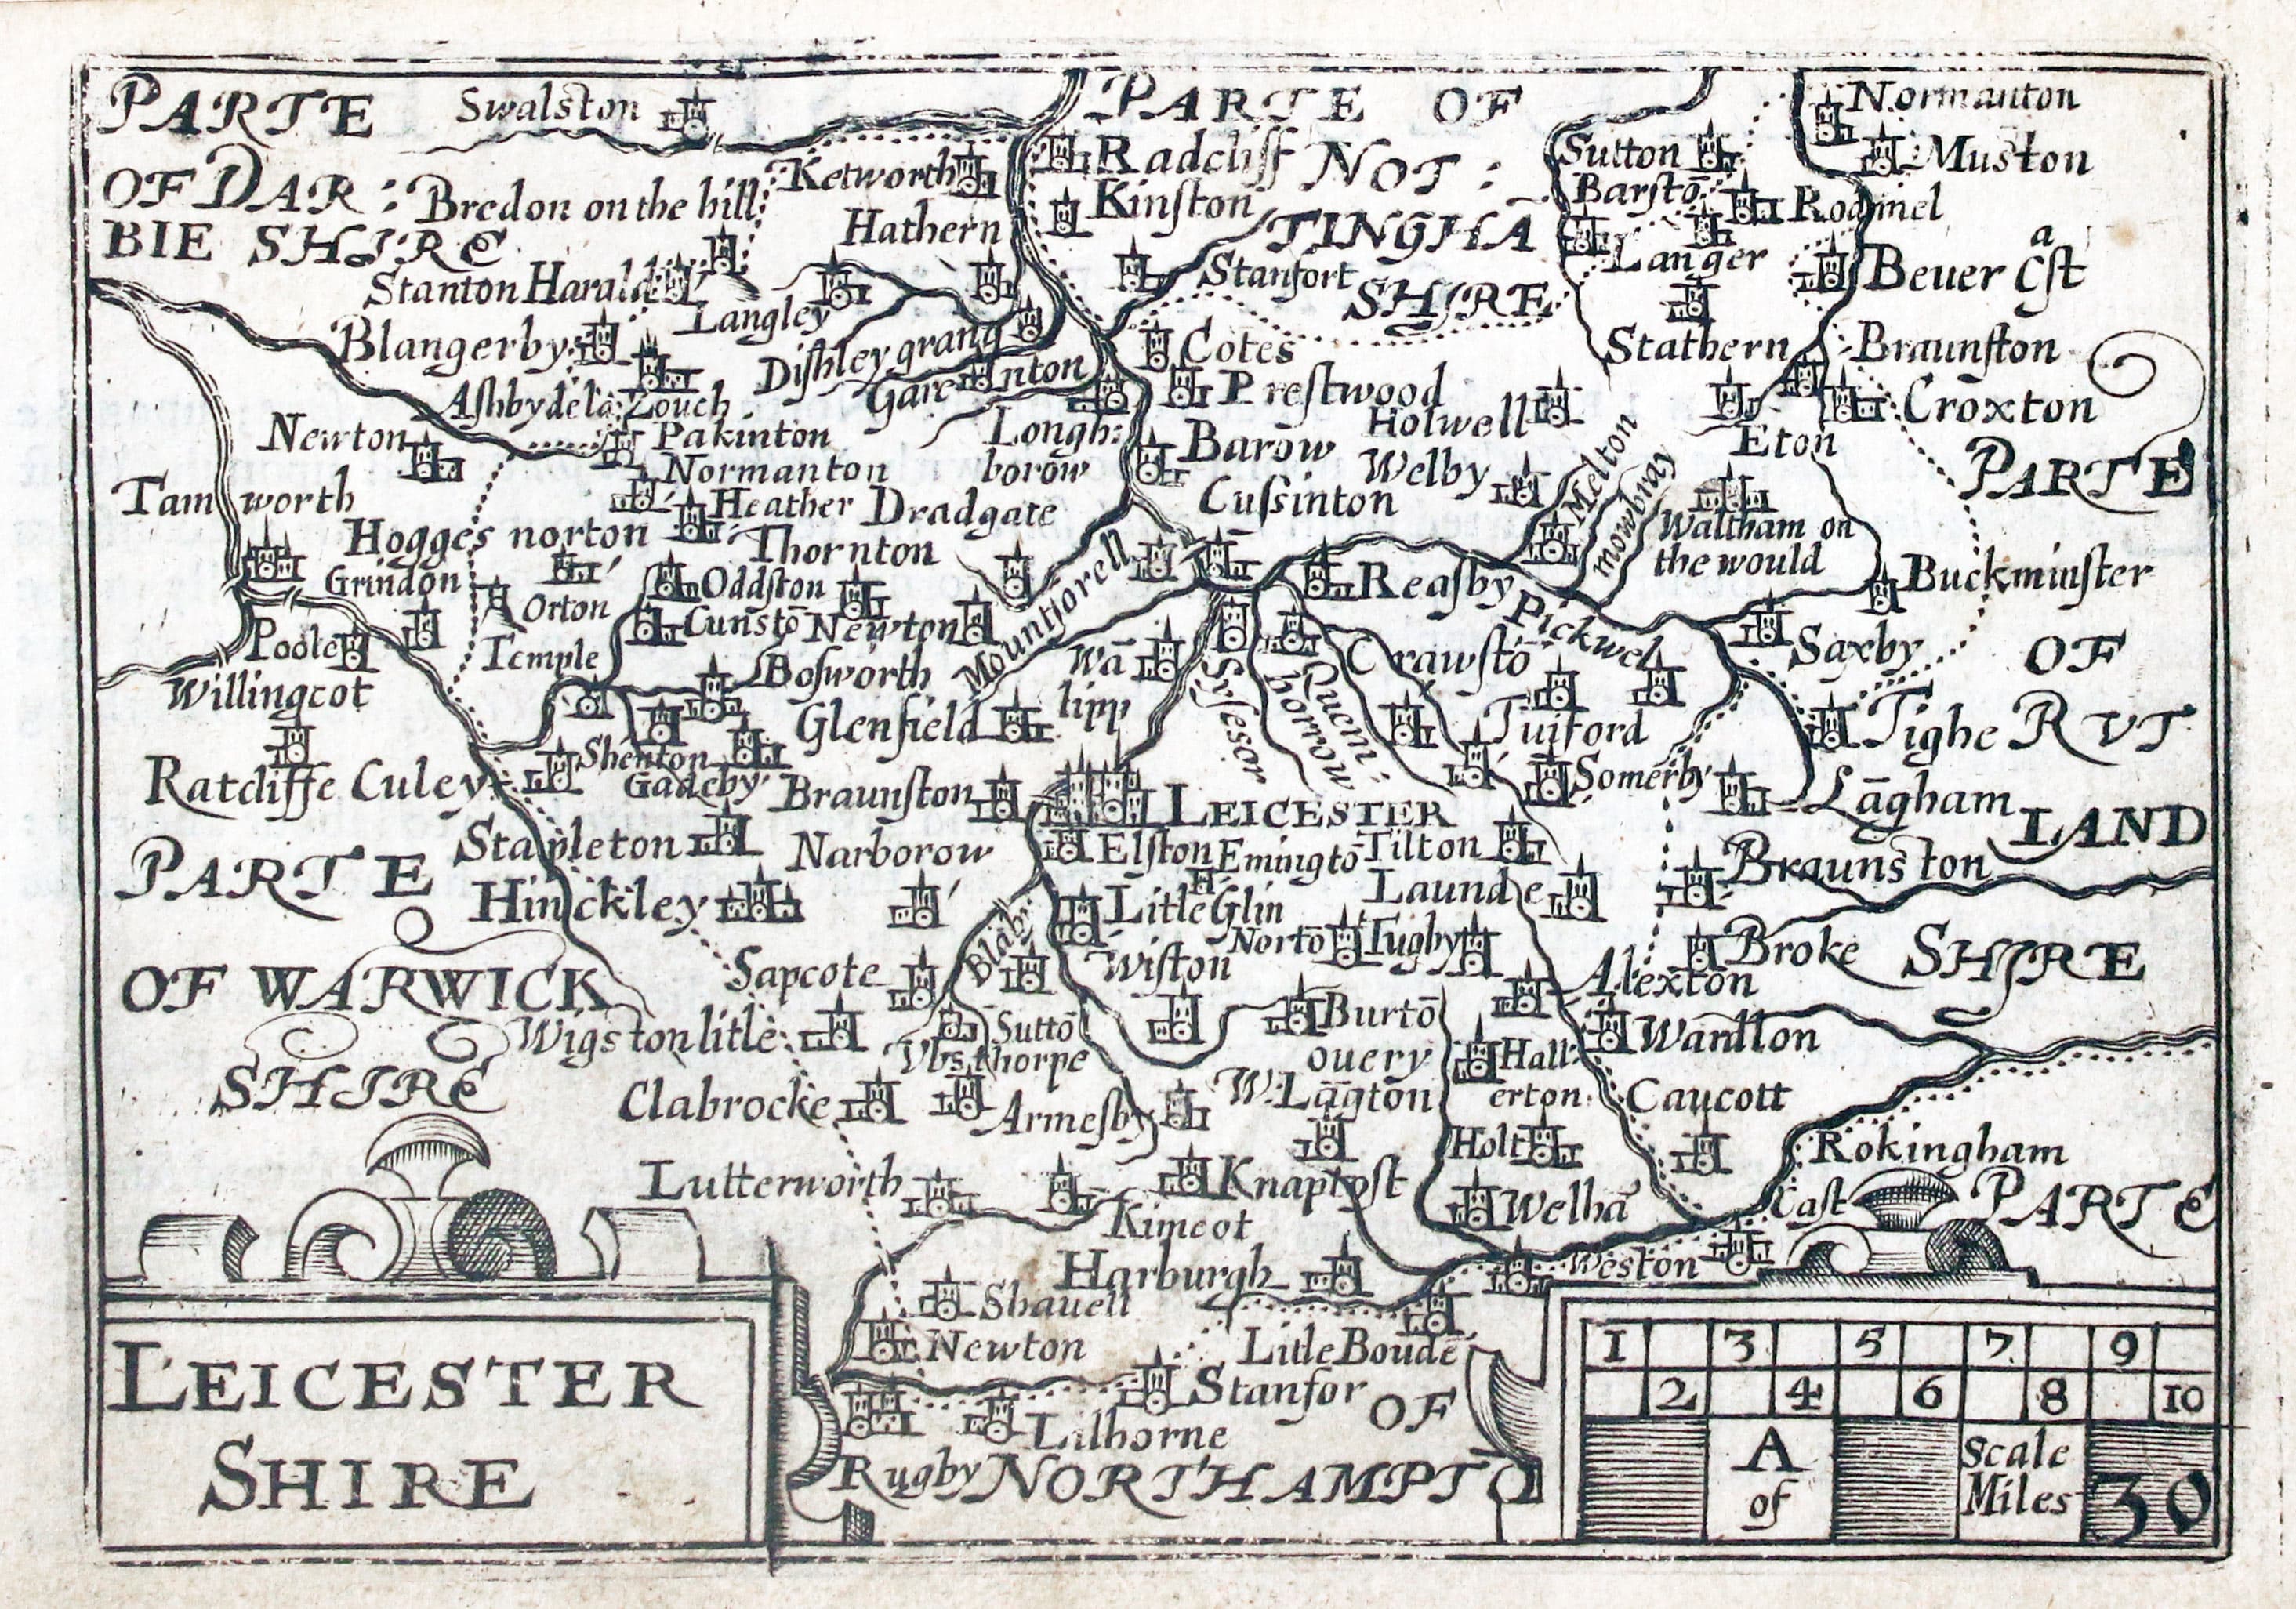 PARTE
OF DAR:
BIE SHIRE
Swalston
Bredon on the hill
Ketworth
Hathern
PARTE OF
NOT:
TINGHĀ
SHIRE
Radcliff
Kinſton
Stanfort
Sutton
Barstō
Langer
Normanton
Muston
Rodmel
Beuer Caſt
Stanton Harald
Langley
Blangerby
Diſhley grang
Garenton
Aſhby de la Zouch
Cotes
Preſtwood
Holwell
Stathern
Braunſton
Croxton
Eton
Newton
Pakinton
Normanton
Longh:
borow
Barow
Welby
Melton
mowbray
Tamworth
Heather
Dradgate
Cuſsinton
Waltham on
the would
PARTE
OF
RUT
LAND
SHIRE
Hogges norton
Thornton
Grindon
Orton
Oddſton
Mountſorell
Reaſby
Buckminſter
Poole
Temple
Cunstō
Newton
Pickwel
Saxby
Willingcot
Boſworth
Glenfield
Wā
lipp
Syſesor
Quem'
horrow
Crawſtō
Tuiford
Tighe
Shenton
Gadeby
Ratcliffe Culey
Braunſton
LEICESTER
Somerby
Lāgham
Stapleton
Narborow
Elſton
Emingtō
Tilton
Braunston
PARTE
OF WARWICK
SHIRE
Hinckley
Litle Glin
Launde
Blāby
Nortō
Tugby
Broke
Sapcote
Wiſton
Alexton
Wigston litle
Suttō
Vbsthorpe
Burtō
ouery
Hall:
erton
Wardlon
Clabrocke
Armeſby
W: Lāgton
Caucott
Lutterworth
Knaptoſt
Holt
Rokingham
Caſt
Kimcot
Welhā
Harburgh
Weston
PARTE
OF
NORTHAMPTŌ
Shauell
Newton
Litle Boudē
Stanfor
Lilborne
Rugby
LEICESTER
SHIRE
1 3 5 7 9
2 4 6 8 10
A Scale
of Miles
30